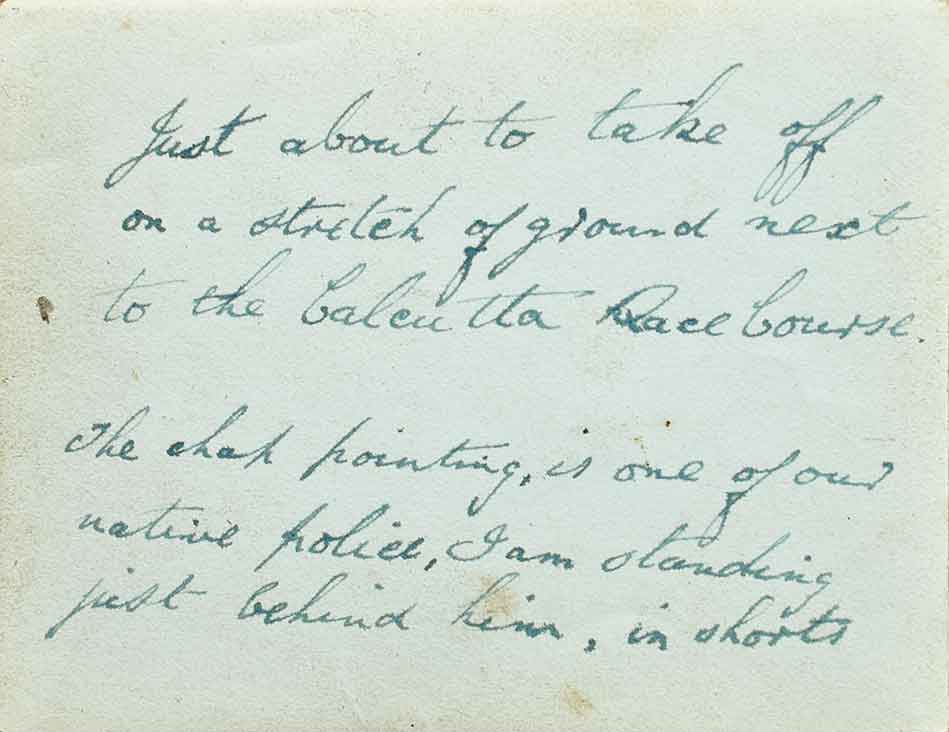 Just about to take off
on a stretch of ground next
to the Calcutta Race Course.
The chap pointing, is one of our
native police, I am standing
just behind him, in shorts